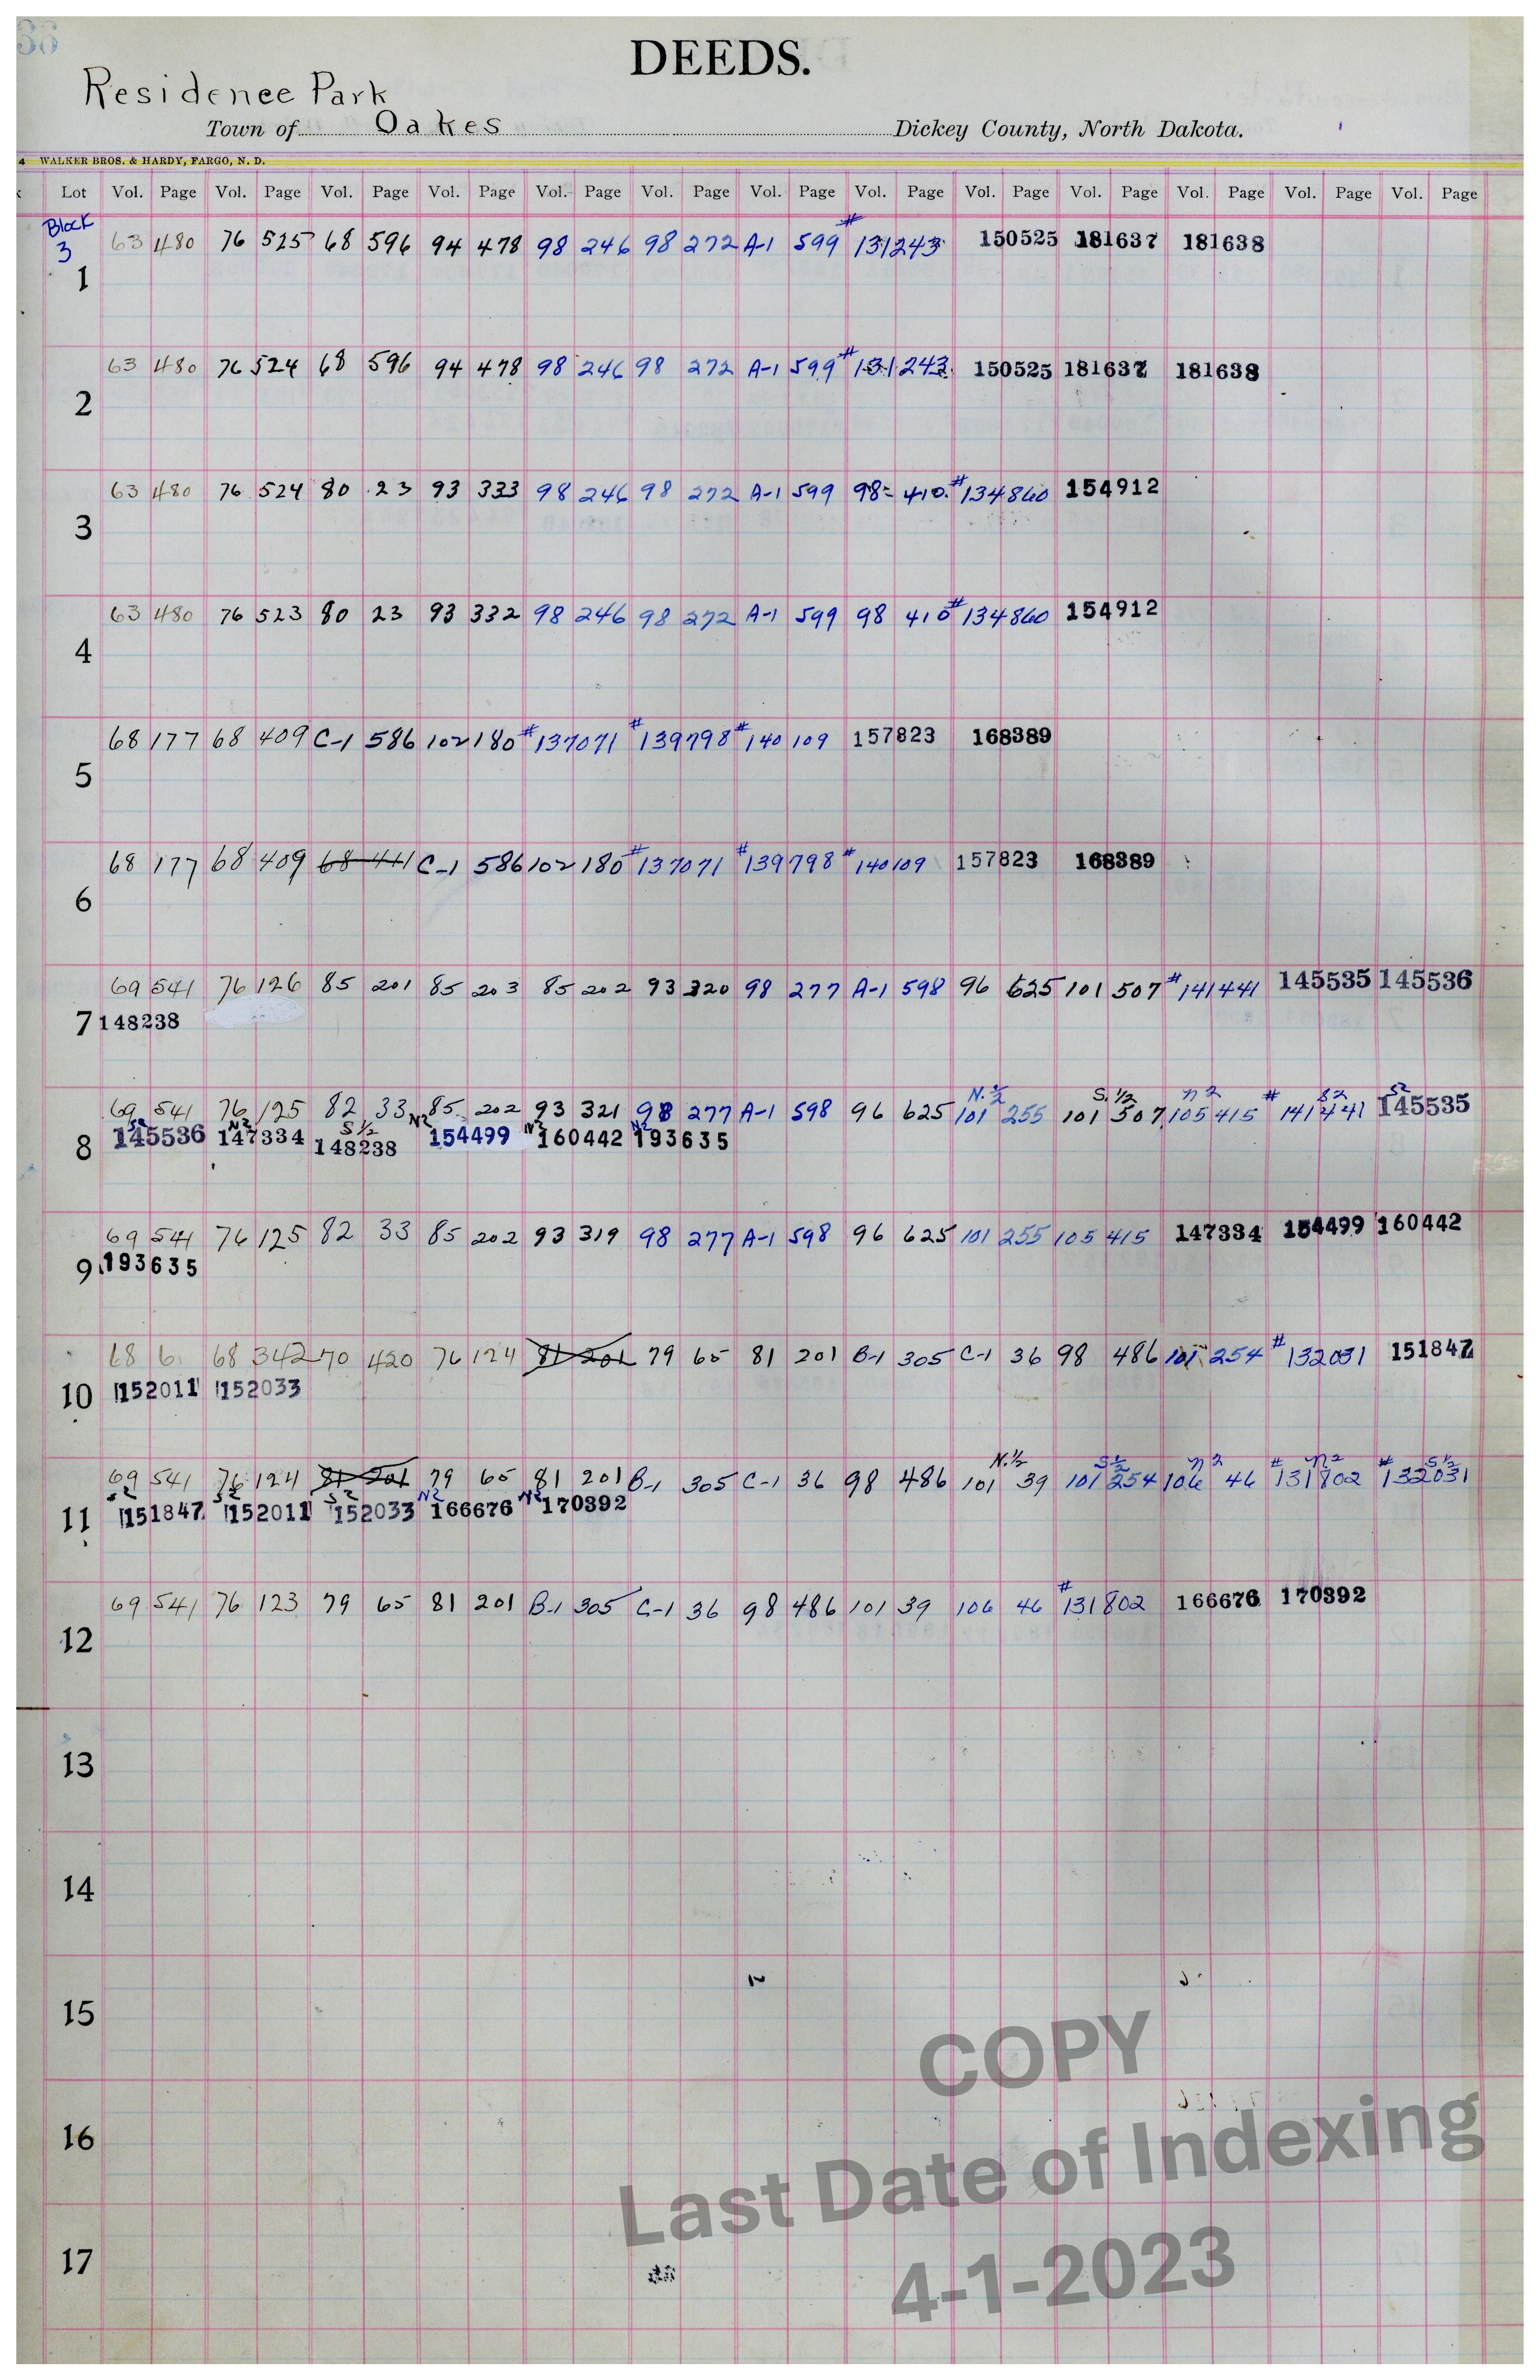 DEEDS.
Residence Park
Town of Oakes Dickey County, North Dakota.
4 WALKER BROS. & HARDY, FARGO, N. D.
Lot Vol. Page Vol. Page Vol. Page Vol. Page Vol. Page Vol. Page Vol. Page Vol. Page Vol. Page Vol. Page Vol. Page Vol. Page Vol. Page
Block
3
63 480 76 525 68 596 94 478 98 246 98 272 A-1 599 #131243 150525 181637 181638
1
63 480 76 524 68 596 94 478 98 246 98 272 A-1 599 #131243 150525 181637 181638
2
63 480 76 524 80 23 93 333 98 246 98 272 A-1 599 98 410 #134860 154912
3
63 480 76 523 80 23 93 332 98 246 98 272 A-1 599 98 410 #134860 154912
4
68 177 68 409 C-1 586 102 180 #137071 #139798 #140109 157823 168389
5
68 177 68 409 68 441 C-1 586 102 180 #137071 #139798 #140109 157823 168389
6
69 541 76 126 85 201 85 203 85 202 93 320 98 277 A-1 598 96 625 101 507 #141441 145535 145536
7 148238
N.½ S.½ N2 # S2 S2
69 541 76 125 82 33 85 202 93 321 98 277 A-1 598 96 625 101 255 101 507 105 415 141441 145535
S2 N2 S½ N2 N2 N2
8 145536 147334 148238 154499 160442 193635
69 541 76 125 82 33 85 202 93 319 98 277 A-1 598 96 625 101 255 105 415 147334 154499 160442
9 193635
68 6 68 342 70 420 76 124 81 201 79 65 81 201 B-1 305 C-1 36 98 486 101 254 #132031 151847
10 152011 152033
N.½ S½ N2 # N2 # S½
69 541 76 124 81 201 79 65 81 201 B-1 305 C-1 36 98 486 101 39 101 254 106 46 131802 132031
S2 S2 S2 N2 N2
11 151847 152011 152033 166676 170392
69 541 76 123 79 65 81 201 B-1 305 C-1 36 98 486 101 39 106 46 #131802 166676 170392
12
13
14
15
16
17
COPY
Last Date of Indexing
4-1-2023